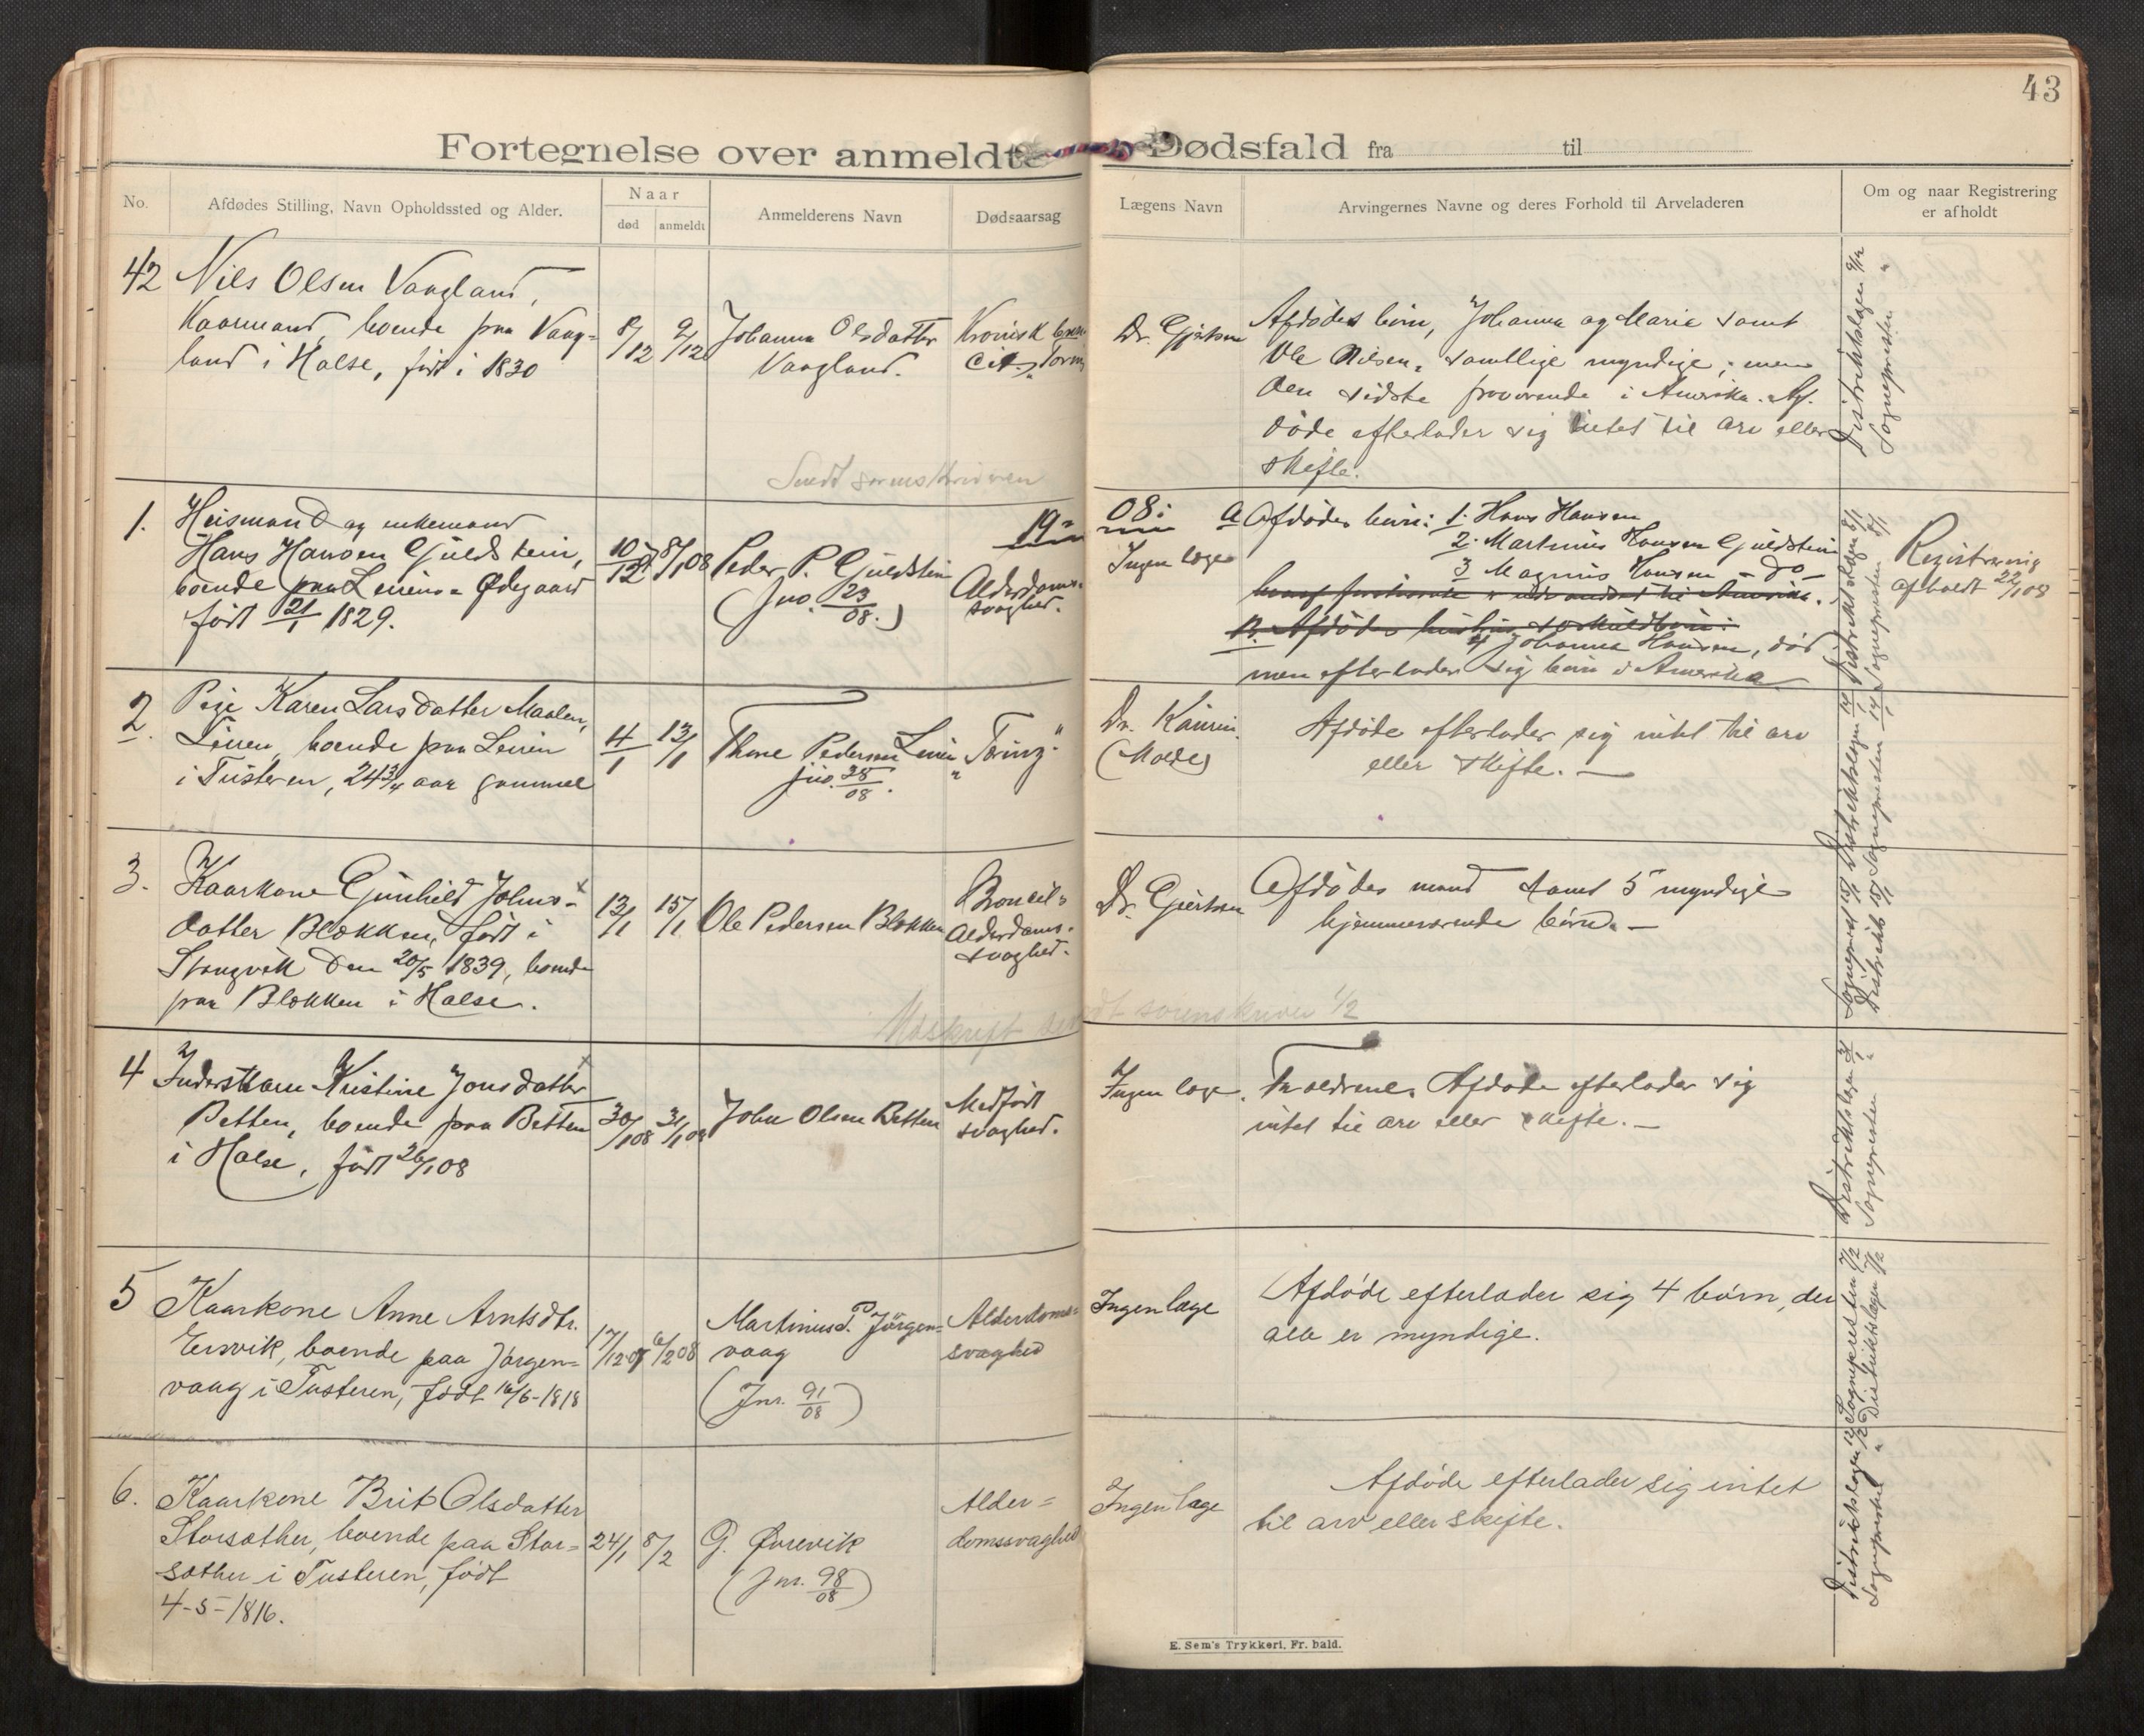 43
Fortegnelse over anmeldte Dødsfald fra til
No.
Afdødes Stilling, Navn Opholdssted og Alder.
Naar
død
anmeldt
Anmelderens Navn
Dødsaarsag
Lægens Navn
Arvingernes Navne og deres Forhold til Arveladeren
Om og naar Registrering
er afholdt
42
Nils Olsen Vaagland,
Kaarmand, boende paa Vaag-
land i Halse, født i 1830
8/12
9/12
Johanna Olsdatter
Vaagland.
Kronisk
Dr. Gjertsen
Afdødes børn, Johanna og Marie samt
Ole Nilsen, samtlige myndige, men
den sidste fraværende i Amerika. Af-
døde efterlader sig intet til arv eller
skifte.
Distriktslægen 9/12
Sognepresten "
Sendt sorenskriveren
19-08:
1.
Husmand og enkemand
Hans Hansen Guldstein,
boende paa Leiren-Ødegaard
født 21/1 1829.
8/1 08
Peder P. Guldstein
(Jno. 23/08.)
Alderdoms-
svaghed.
Ingen læge
a Afdødes børn: 1. Hans Hansen
2. Martinus Hansen Guldstein
3 Magnus Hansen - do -
4 Johanna Hansen, død
men efterlader sig børn i Amerika
Registrering
afholdt 22/1 08
2.
Pige Karen Larsdatter Maalen,
Leiren, boende paa Leiren
i Tusteren, 24 3/4 aar gammel
4/1
13/1
Thore Pedersen Leiren
jno. 38/08.
"Toring."
Dr. Kaurin.
(Molde)
Afdøde efterlader sig intet til arv
eller skifte. —
Distriktslægen 14/1
Sognepresten 14/1
3.
Kaarkone Gunhild Johns-
datter Blokken, født i
Stangvik den 20/5 1839, boende
paa Blokken i Halse.
13/1
15/1
Ole Pedersen Blekken
Alderdoms-
svaghed.
Dr. Gjertsen
Afdødes mand samt 5 myndige
hjemmeværende børn. —
Sogneprest 15/1
Distriktsl. 15/1
Udskrift sendt sorenskriver 1/2
4
Inderstbarn Kristine Jonsdatter
Betten, boende paa Betten
i Halse, født 26/1 08
30/1 08
31/1 08
John Olsen Betten
Medfødt
svaghed.
Ingen læge.
Forældrene. Afdøde efterlader sig
intet til arv eller skifte. —
Distriktslægen
Sognepresten "
5
Kaarkone Anne Arntsdtr.
Ersvik, boende paa Jørgen-
vaag i Tusteren, født 16/6-1818
17/12 07
6/2 08
Martinus P. Jørgen-
vaag
(Jnr. 91/08)
Alderdoms-
svaghed
Ingen læge
Afdøde efterlader sig 4 børn, der
alle er myndige.
Sognepresten 7/2
Distriktslægen 7/2
6.
Kaarkone Brit Olsdatter
Storsæther, boende paa Stor-
sæther i Tusteren, født
4-5-1816.
24/1
8/2
G. Ørevik
(Jnr. 98/08)
Alder-
domssvaghed
Ingen læge
Afdøde efterlader sig intet
til arv eller skifte.
Distriktslægen 12/2
Sogneprest "
E. Sem's Trykkeri, Fr. hald.